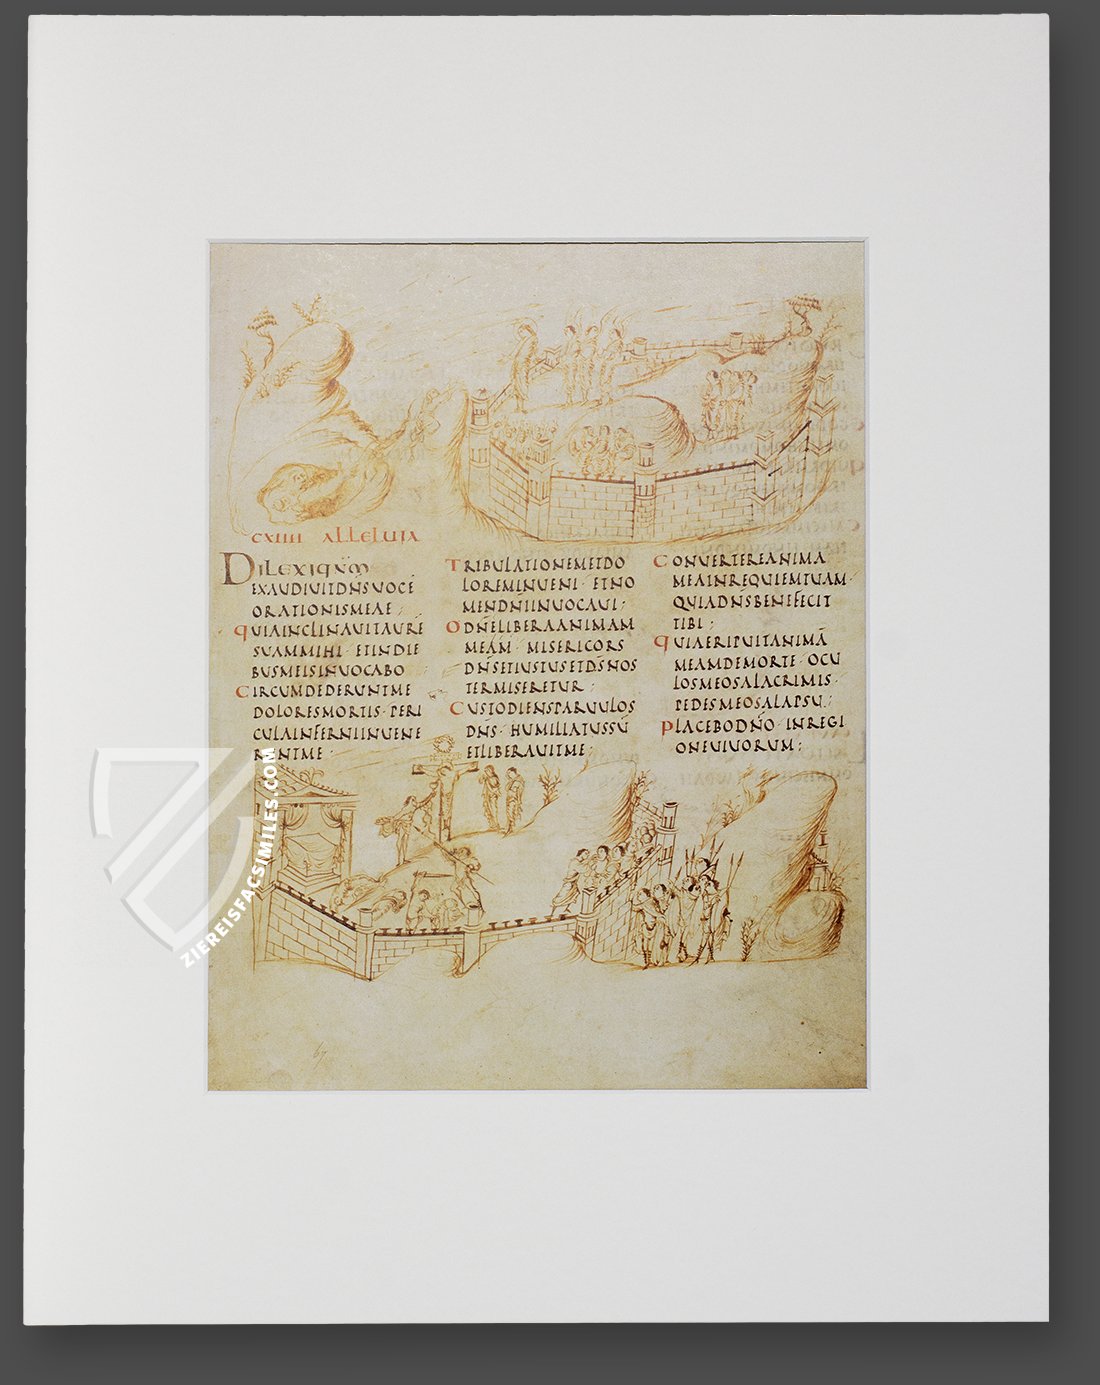 CXIIII ALLELUIA
DILEXI QNM
EXAUDIUITDNSUOCĒ
ORATIONISMEAE;
QUIAINCLINAUITAURĒ
SUAMMIHI· ETINDIE
BUSMEISINUOCABO
CIRCUMDEDERUNTME
DOLORESMORTIS· PERI
CULAINFERNIINUENE
RUNTME;
TRIBULATIONEMETDO
LOREMINUENI· ETNO
MENDN̄IINUOCAUI;
ODNĒLIBERAANIMAM
MEAM· MISERICORS
DNSETIUSTUSETDSNOS
TERMISERETUR;
CUSTODIENSPARUULOS
DN̄S· HUMILIATUSSŪ
ETLIBERAUITME;
CONUERTEREANIMA
MEAINREQUIEMTUAM·
QUIADNSBENEFECIT
TIBI;
QUIAERIPUITANIMĀ
MEAMDEMORTE· OCU
LOSMEOSALACRIMIS·
PEDESMEOSALAPSU;
PLACEBODNŌ· INREGI
ONEUIUORUM;
67
ZIEREISFACSIMILES.COM